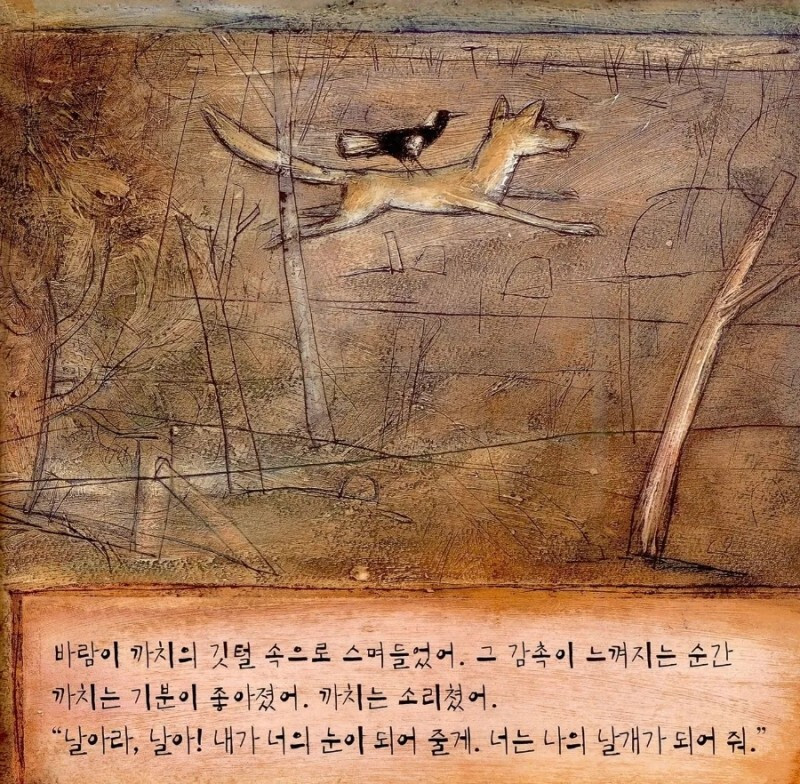 바람이 까치의 깃털 속으로 스며들었어. 그 감촉이 느껴지는 순간
까치는 기분이 좋아졌어. 까치는 소리쳤어.
“날아라, 날아! 내가 너의 눈이 되어 줄게. 너는 나의 날개가 되어 줘.”